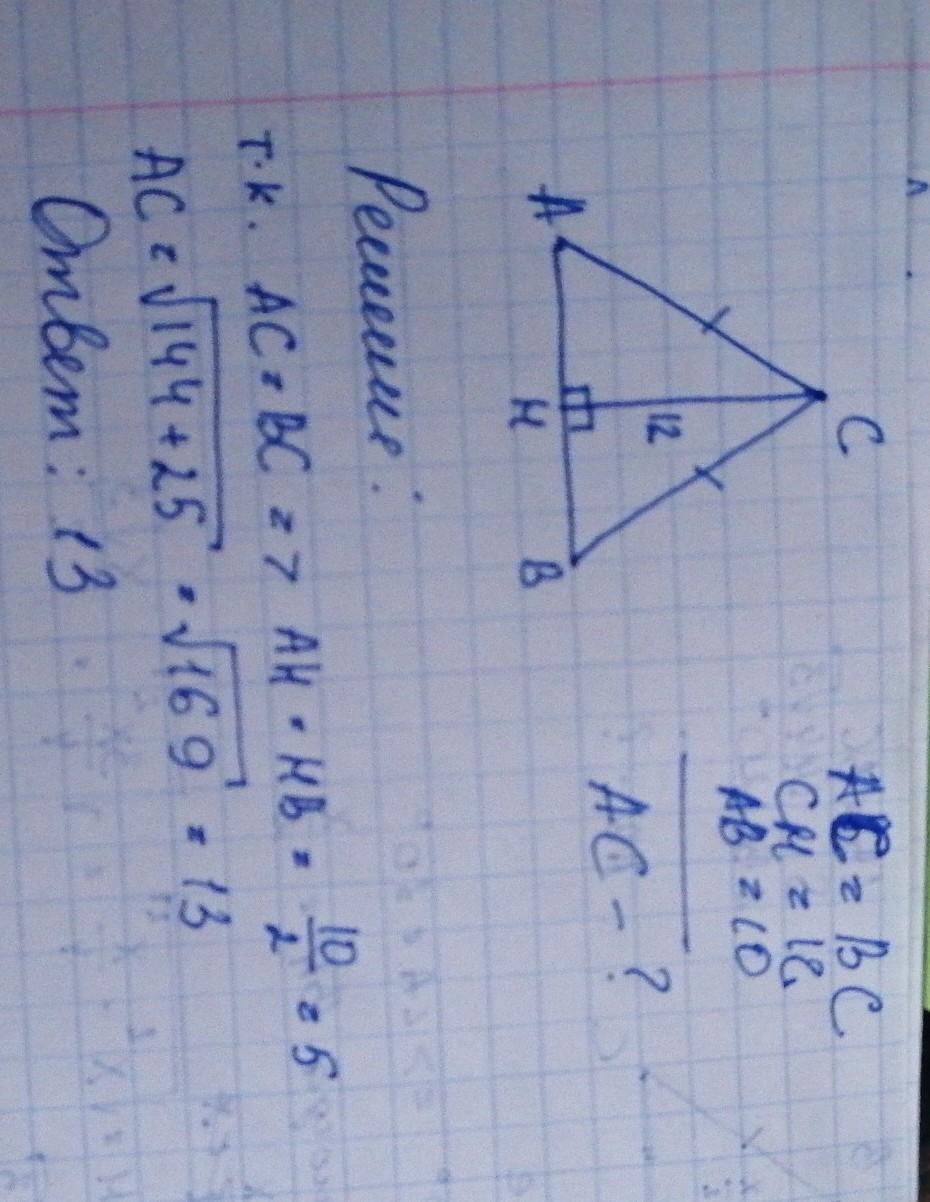 C
12
A
H
B
AC = BC
CH = 12
AB = 10
AC - ?
Решение:
т.к. AC = BC => AH = HB = 10/2 = 5
AC = √144+25 = √169 = 13
Ответ: 13